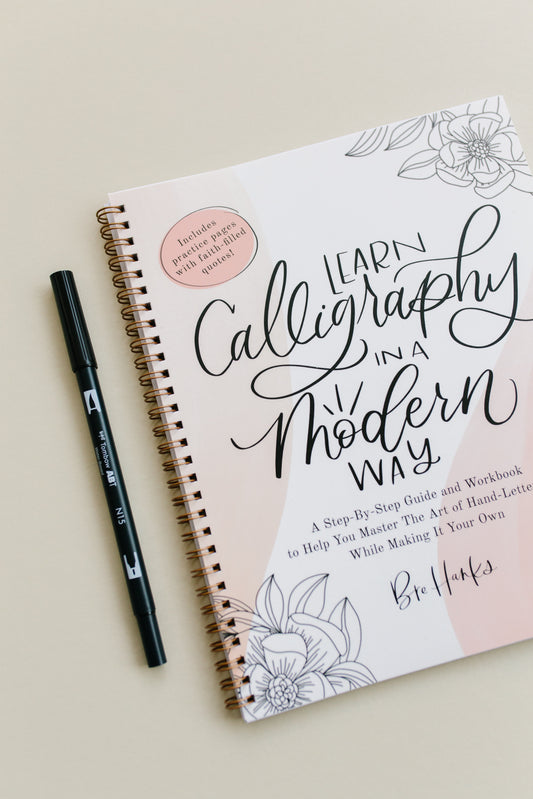 Includes
practice pages
with faith-filled
quotes!
LEARN
Calligraphy
IN A
Modern
WAY
A Step-By-Step Guide and Workbook
to Help You Master The Art of Hand-Lette
While Making It Your Own
Bre Hanks
Tombow ABT
N15